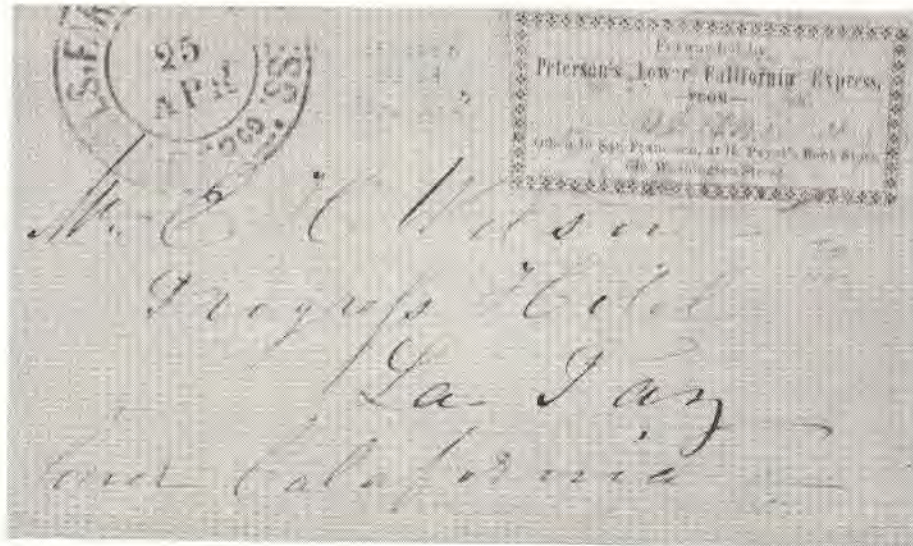 25
APR
Forwarded by
Peterson's Lower California Express,
FROM
Office in San Francisco, at H. Payot's Book Store,
640 Washington Street.
Mr. C C Wilson
Progress Hotel
La Paz
Lower Calafornia